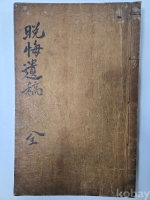 晚悔遺稿
全
kobay